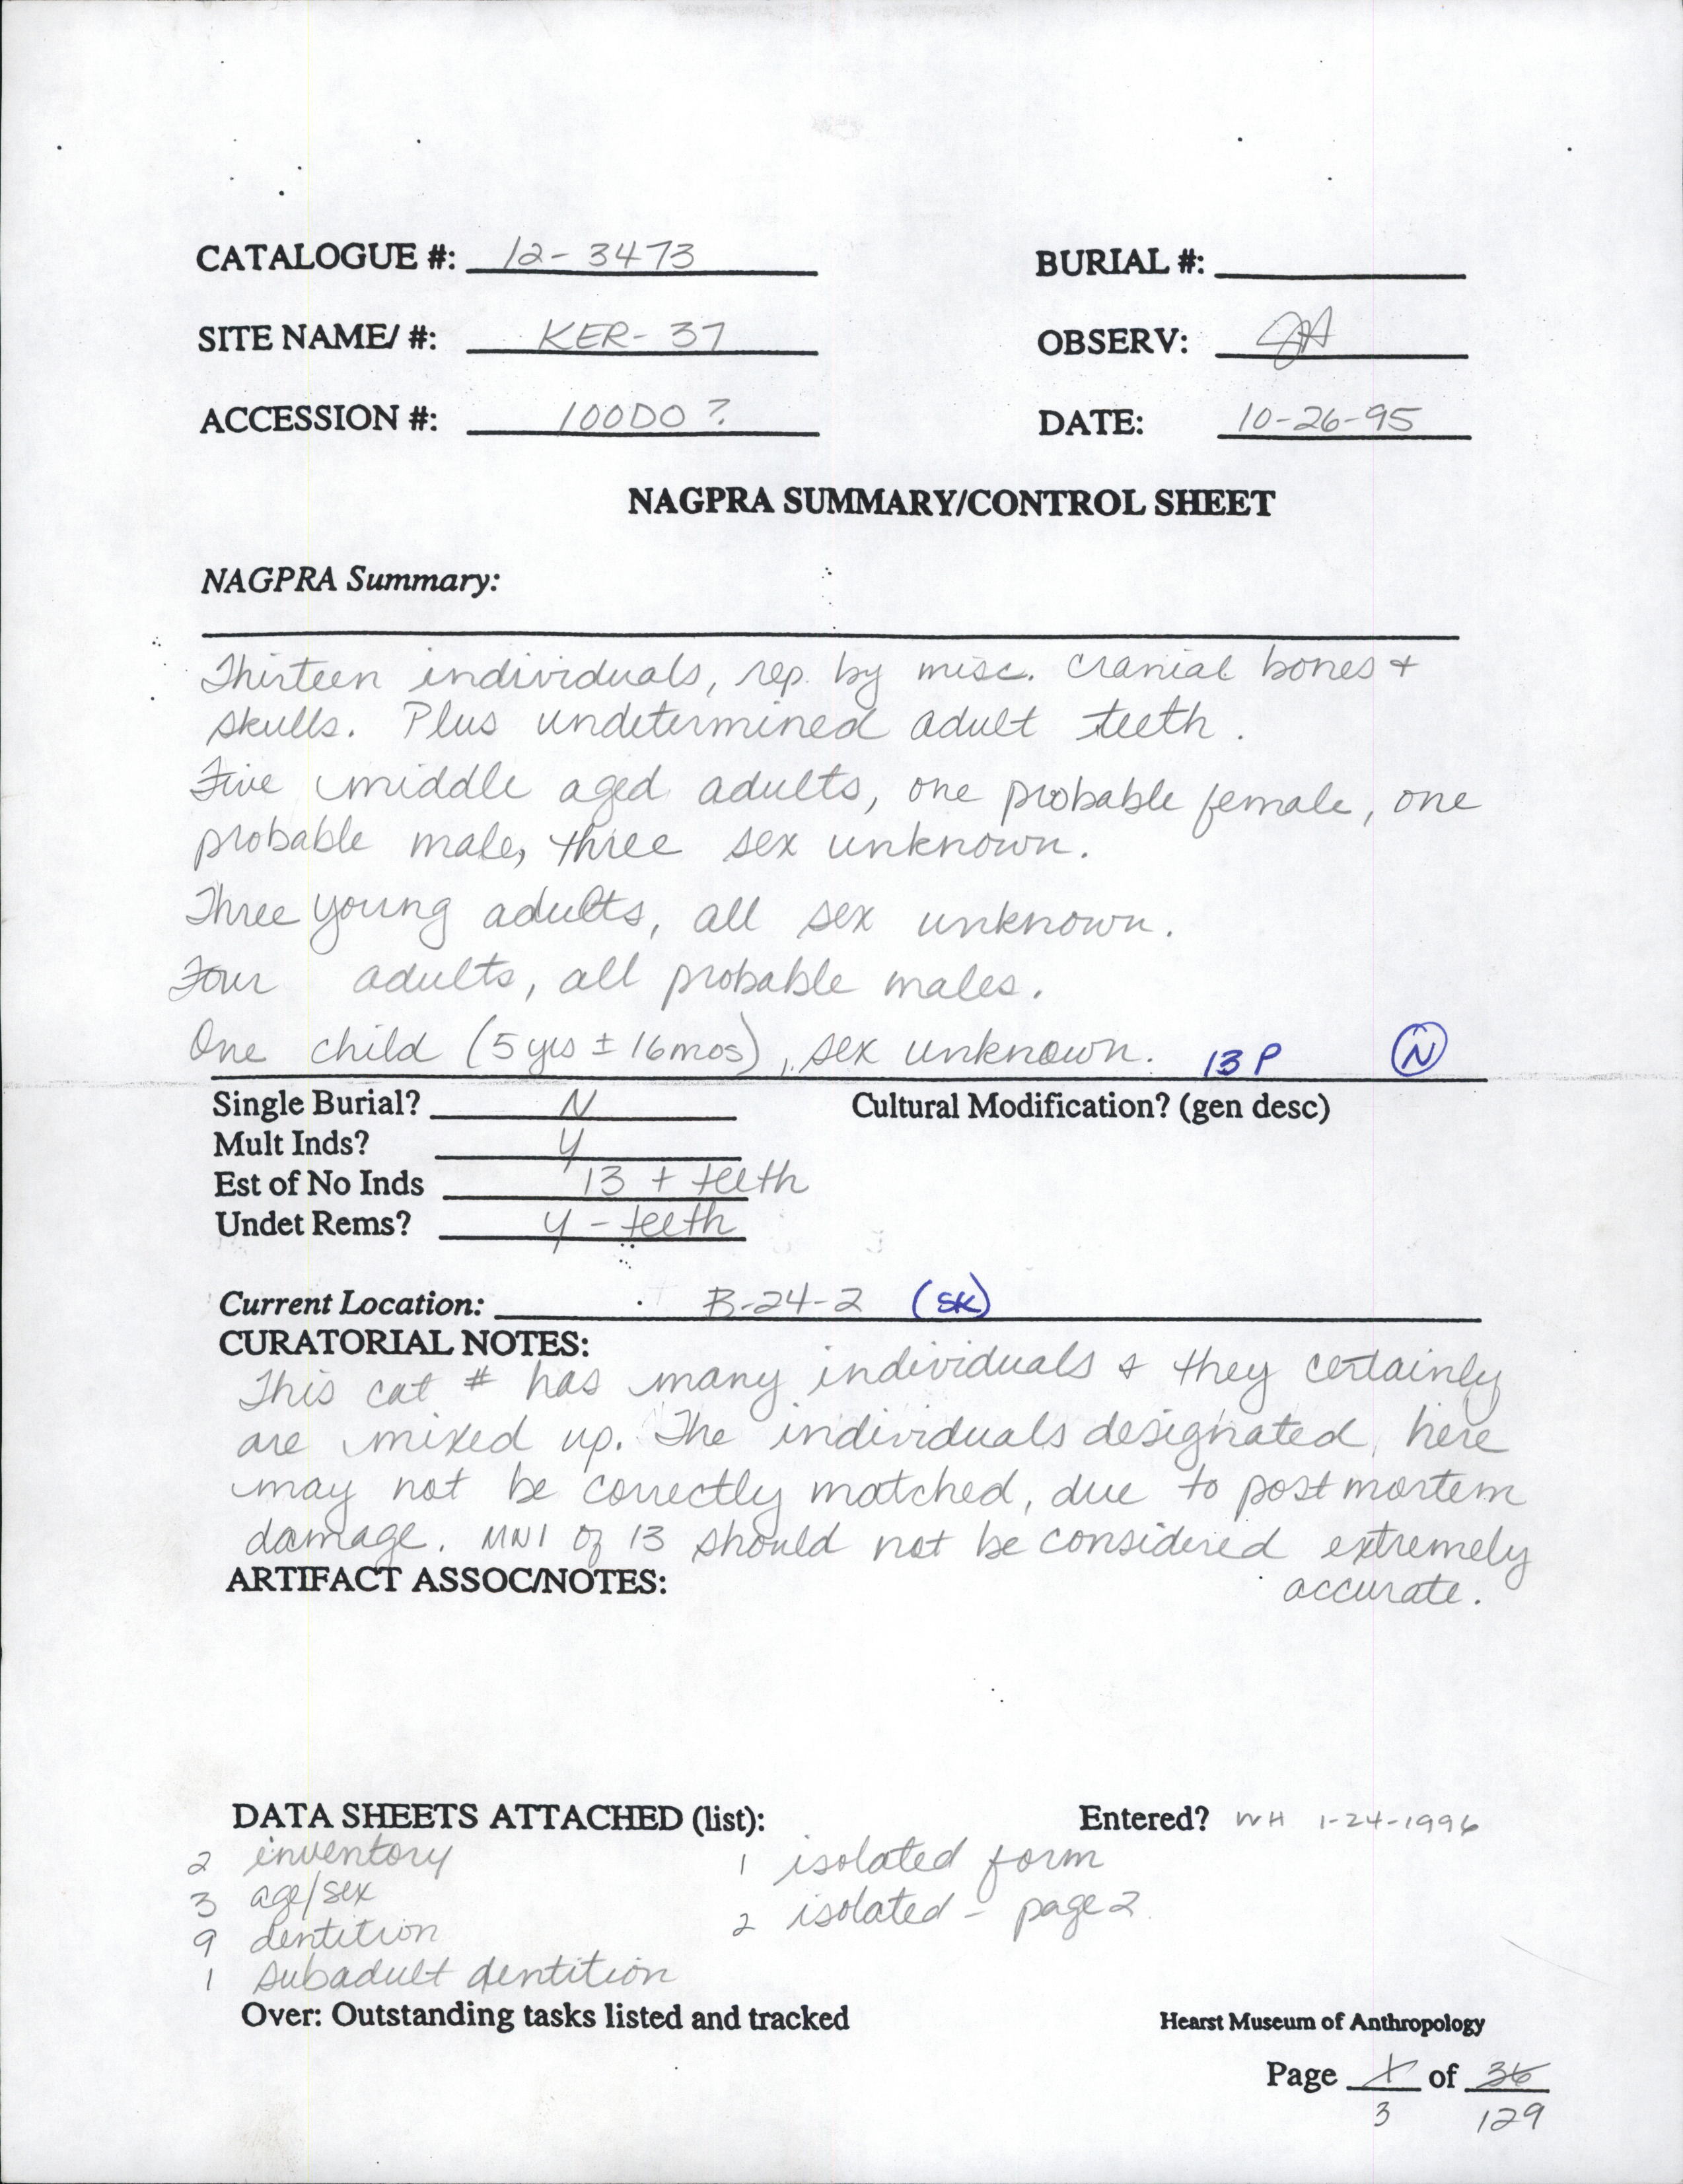 CATALOGUE #: 12-3473 BURIAL #:
SITE NAME/ #: KER-37 OBSERV: JA
ACCESSION #: 100DO ? DATE: 10-26-95
NAGPRA SUMMARY/CONTROL SHEET
NAGPRA Summary:
Thirteen individuals, rep. by misc. cranial bones +
skulls. Plus undetermined adult teeth.
Five middle aged adults, one probable female, one
probable male, three sex unknown.
Three young adults, all sex unknown.
Four adults, all probable males.
One child (5 yrs ± 16mos), sex unknown. 13 P N
Single Burial? N Cultural Modification? (gen desc)
Mult Inds? Y
Est of No Inds 13 + teeth
Undet Rems? Y - teeth
Current Location: B-24-2 (SK)
CURATORIAL NOTES:
This cat # has many individuals & they certainly
are mixed up. The individuals designated here
may not be correctly matched, due to postmortem
damage. MNI of 13 should not be considered extremely
accurate.
ARTIFACT ASSOC/NOTES:
DATA SHEETS ATTACHED (list): Entered? WH 1-24-1996
2 inventory 1 isolated form
3 age/sex 2 isolated - page 2
9 dentition
1 subadult dentition
Over: Outstanding tasks listed and tracked
Hearst Museum of Anthropology
Page 1 of 36
3 129